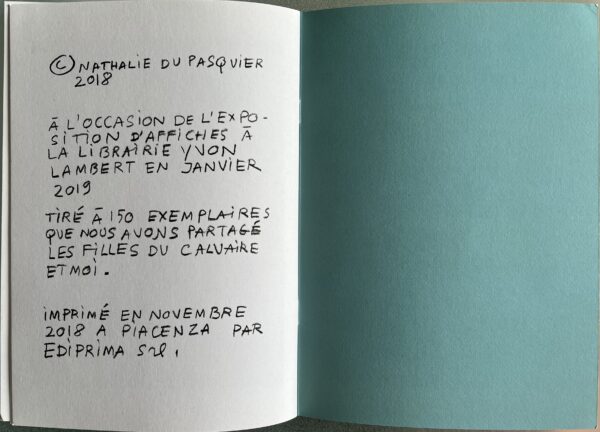 © NATHALIE DU PASQUIER
2018
À L'OCCASION DE L'EXPO-
SITION D'AFFICHES À
LA LIBRAIRIE YVON
LAMBERT EN JANVIER
2019
TIRÉ À 150 EXEMPLAIRES
QUE NOUS AVONS PARTAGÉ
LES FILLES DU CALVAIRE
ET MOI.
IMPRIMÉ EN NOVEMBRE
2018 A PIACENZA PAR
EDIPRIMA Srl.